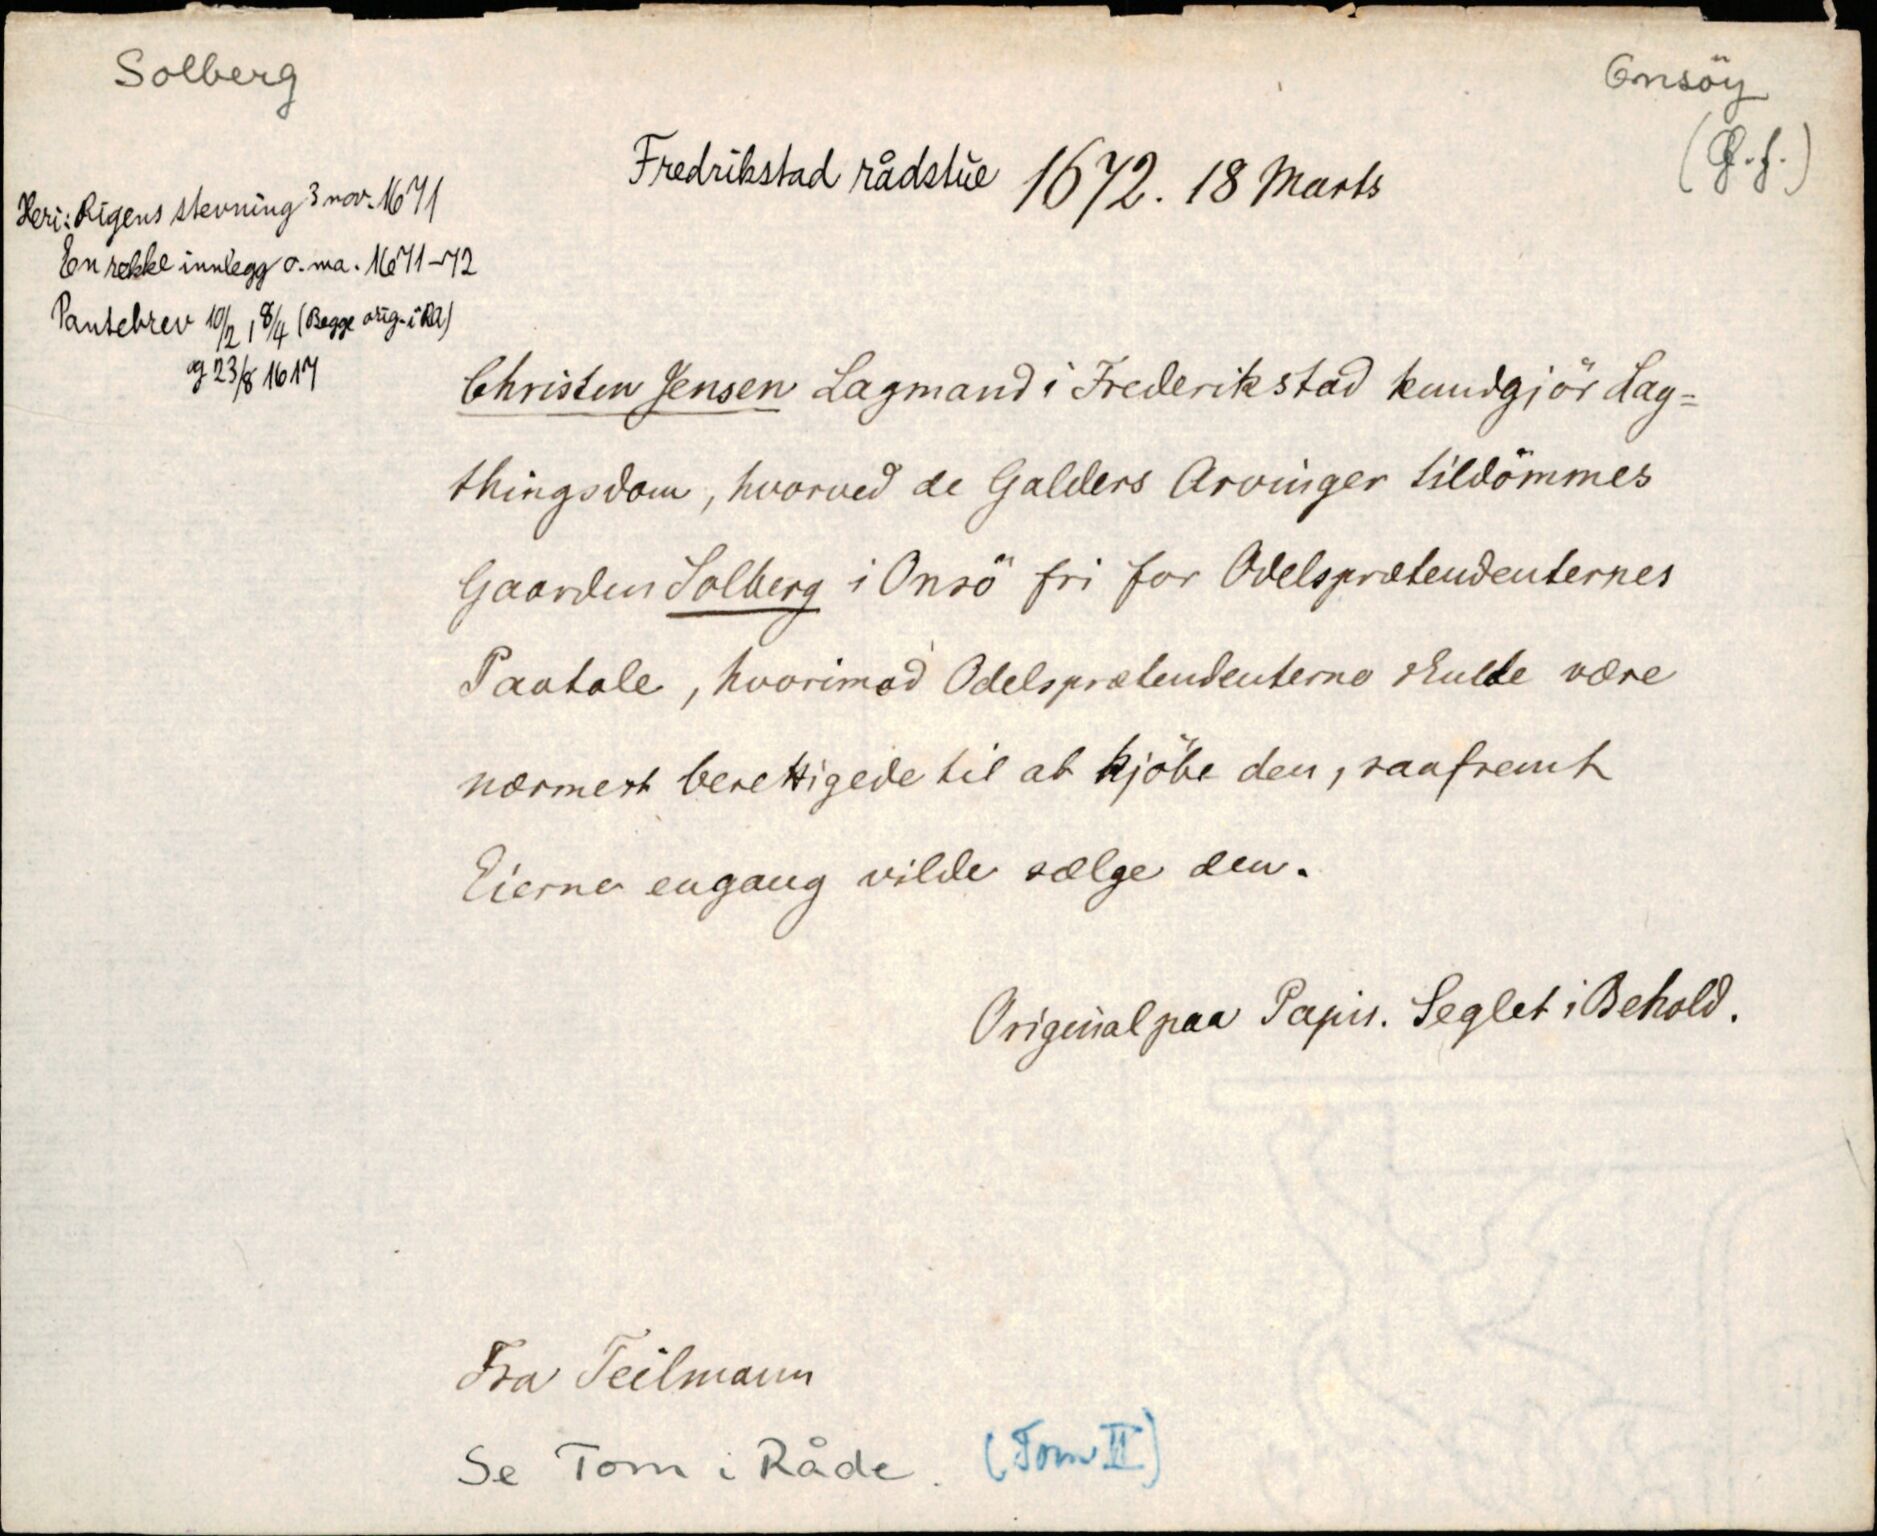 Solberg
Onsöy
(G.f.)
Fredrikstad rådstue 1672. 18 Marts
Heri: Rigens stevning 3 nov. 1671
En rekke innlegg o.m.a. 1671-72
Pantebrev 10/2, 8/4 (Begge orig. i RA)
og 23/8 1617
Christen Jensen Lagmand i Frederikstad kundgjör Lag=
thingsdom, hvorved de Galders Arvinger tildömmes
Gaarden Solberg i Onsö fri for Odelsprætendenternes
Paatale, hvorimod Odelsprætendenterne skulde være
nærmest berettigede til at kjöbe den, saafremt
Eierne engang vilde sælge den.
Original paa Papir. Seglet i Behold.
Fra Teilmann
Se Tom i Råde. (Tom II)